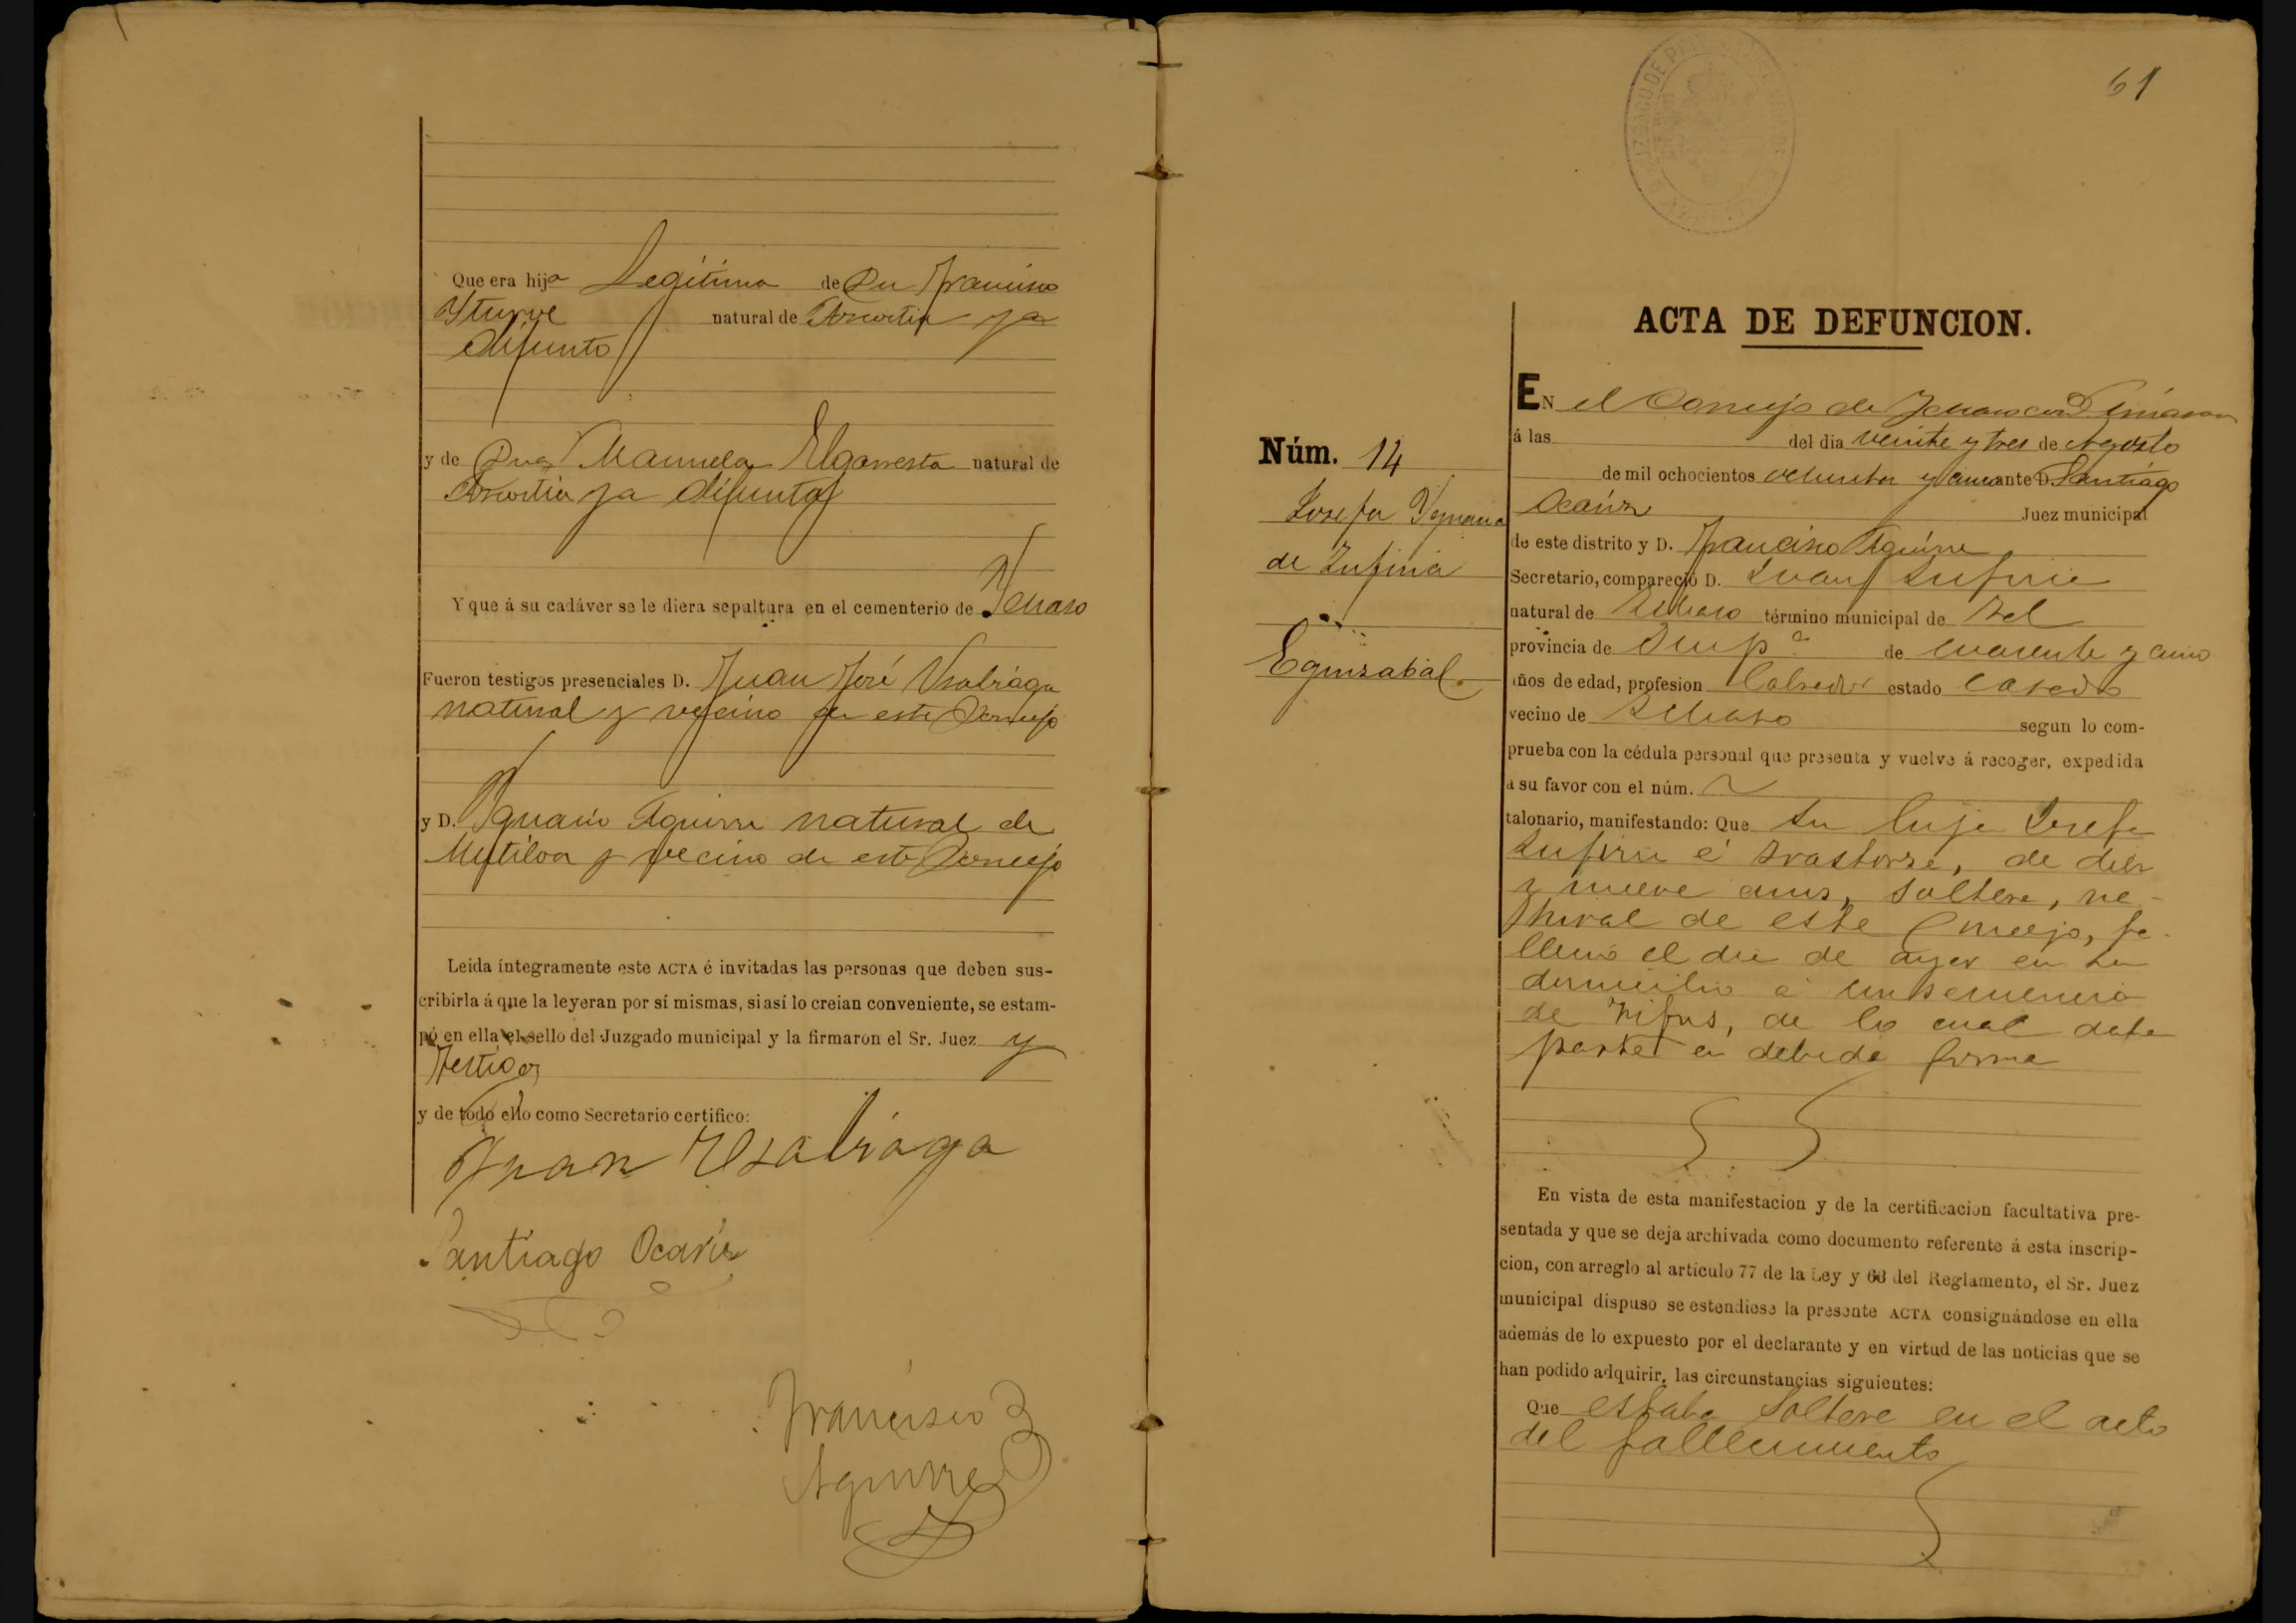 Que era hija Legitima de Dn Francisco
Yturve natural de ya
difunto
y de Dna Manuela Elgarresta natural de
ya difunta
Y que á su cadáver se le diera sepaltura en el cementerio de
Fueron testigos presenciales D. Juan José Usabiaga
natural y vecino de este Concejo
y D. Ygnacio Aguirre natural de
Mutiloa y vecino de este Concejo
Leida íntegramente este ACTA é invitadas las personas que deben sus-
cribirla á que la leyeran por sí mismas, si así lo creian conveniente, se estam-
pó en ella el sello del Juzgado municipal y la firmaron el Sr. Juez y
Testigos
y de todo ello como Secretario certifico:
Juan Usabiaga
Santiago Ocariz
Francisco
Aguirre
61
Núm. 14
Josefa Ygnacia
de Zufiria
Eguizabal
ACTA DE DEFUNCION.
EN el Concejo de
á las del dia veinte y tres de Agosto
de mil ochocientos ochenta y cinco ante D. Santiago
Ocariz Juez municipal
de este distrito y D. Francisco Aguirre
Secretario, compareció D. Juan Zufiria
natural de término municipal de
provincia de Guip.a de cuarenta y cinco
años de edad, profesion Labrador estado casado
vecino de segun lo com-
prueba con la cédula personal que presenta y vuelve á recoger, expedida
a su favor con el núm.
talonario, manifestando: Que su hija Josefa
Zufiria é de diez
y nueve anos, soltera, na-
tural de este Concejo, fa-
llecio el dia de ayer en su
domicilio á consecuencia
de Tifus, de lo cual daba
parte en debida forma
En vista de esta manifestacion y de la certificacion facultativa pre-
sentada y que se deja archivada como documento referente á esta inscrip-
cion, con arreglo al artículo 77 de la Ley y 68 del Reglamento, el Sr. Juez
municipal dispuso se estendiese la presente ACTA consignándose en ella
además de lo expuesto por el declarante y en virtud de las noticias que se
han podido adquirir, las circunstancias siguientes:
Que estaba soltera en el acto
del fallecimiento